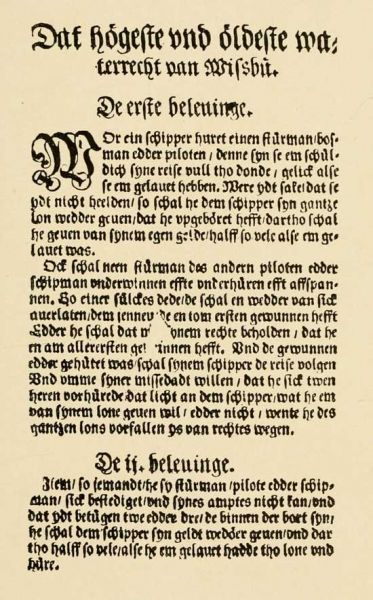 Dat högeste vnd öldeste wa⸗
terrecht van Wißbü.
De erste beleuinge.
WOr ein schipper huret einen stürman/bos⸗
man edder piloten/denne syn se em schül⸗
dich syne reise vull tho donde/gelick alse
se em gelauet hebben. Were ydt sake/dat se
ydt nicht heelden/so schal he dem schipper syn gantze
lon wedder geuen/dat he vpgebört hefft/dartho schal
he geuen van synem egen gelde/halff so vele alse em ge⸗
lauet was.
Ock schal neen stürman des andern piloten edder
schipman vnderwinnen effte vnderhüren efft affspan⸗
nen. So einer sülckes dede/de schal en wedder van sick
auerlaten/dem jennen/de en tom ersten gewunnen hefft
Edder he schal dat synem rechte beholden/dat he
en am allerersten gewinnen hefft. Vnd de gewunnen
edder gehüret was/schal synem schipper de reise volgen
Vnd vmme syner missedadt willen/dat he sick twen
heren vorhürede/dat licht an dem schipper/wat he em
van synem lone geuen wil/edder nicht/wente he des
gantzen lons vorfallen ys van rechtes wegen.
De ij. beleuinge.
Jtem/so jemandt/he sy stürman/pilote edder schip⸗
man/sick bestediget/vnd synes amptes nicht kan/vnd
dat ydt betügen twe edder dre/de binnen der bort syn/
he schal dem schipper syn geldt wedder geuen/vnd dar
tho halff so vele/alse he em gelauet hadde tho lone vnd
hüre.